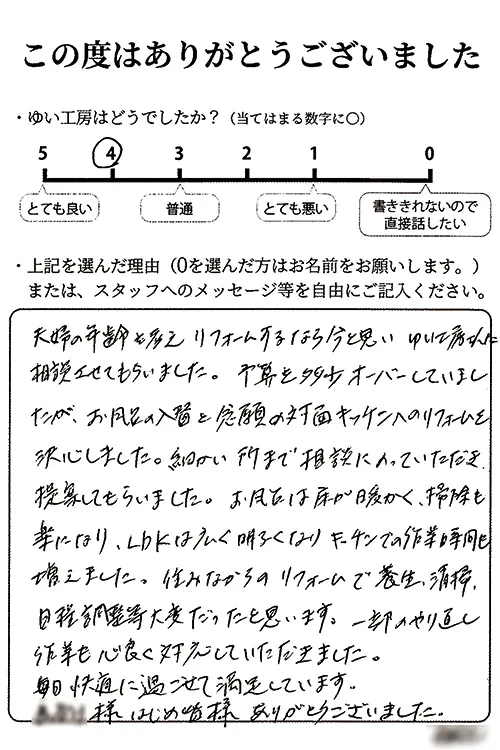 この度はありがとうございました
・ゆい工房はどうでしたか？（当てはまる数字に〇）
5 4 3 2 1 0
とても良い 普通 とても悪い 書ききれないので直接話したい
・上記を選んだ理由（0を選んだ方はお名前をお願いします。）
または、スタッフへのメッセージ等を自由にご記入ください。
夫婦の年齢も考え リフォームするなら今と思い ゆい工房さんに
相談させてもらいました。予算を多少オーバーしていまし
たが、お風呂の入替と念願の対面キッチンへのリフォームを
決心しました。細かい所まで相談にのっていただき
提案してもらいました。お風呂は床が暖かく、掃除も
楽になり、LDKは広く明るくなりキッチンでの作業時間も
増えました。住みながらのリフォームで養生、清掃、
日程調整等大変だったと思います。一部のやり直し
作業も心良く対応していただきました。
毎日快適に過ごせて満足しています。
様はじめ皆様ありがとうございました。